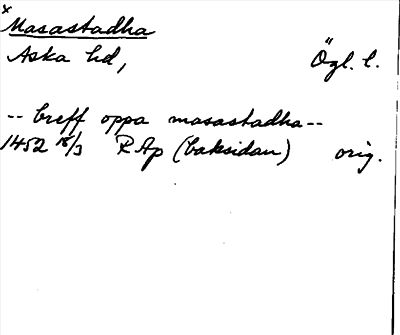 x
Masastadha
Aska hd, Ögl. l.
-- breff oppa masastadha --
1452 18/3 RAp (baksidan) orig.